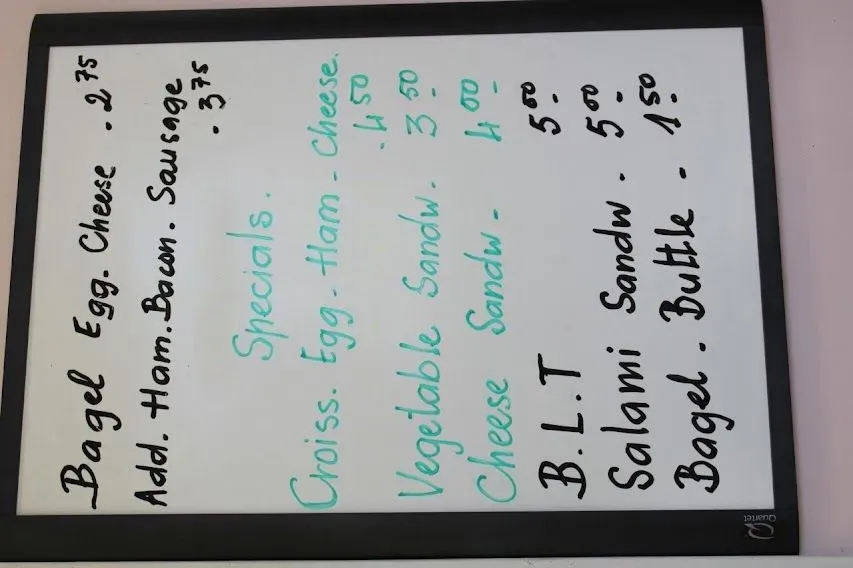 Bagel Egg. Cheese . 2 75
Add. Ham. Bacon. Sausage
. 3 75
Specials.
Croiss. Egg - Ham - Cheese.
. 4 50
Vegetable Sandw. 3 50
Cheese Sandw - 4 00
B.L.T 5 00
Salami Sandw . 5 00
Bagel . Buttle - 1 50
Quartet